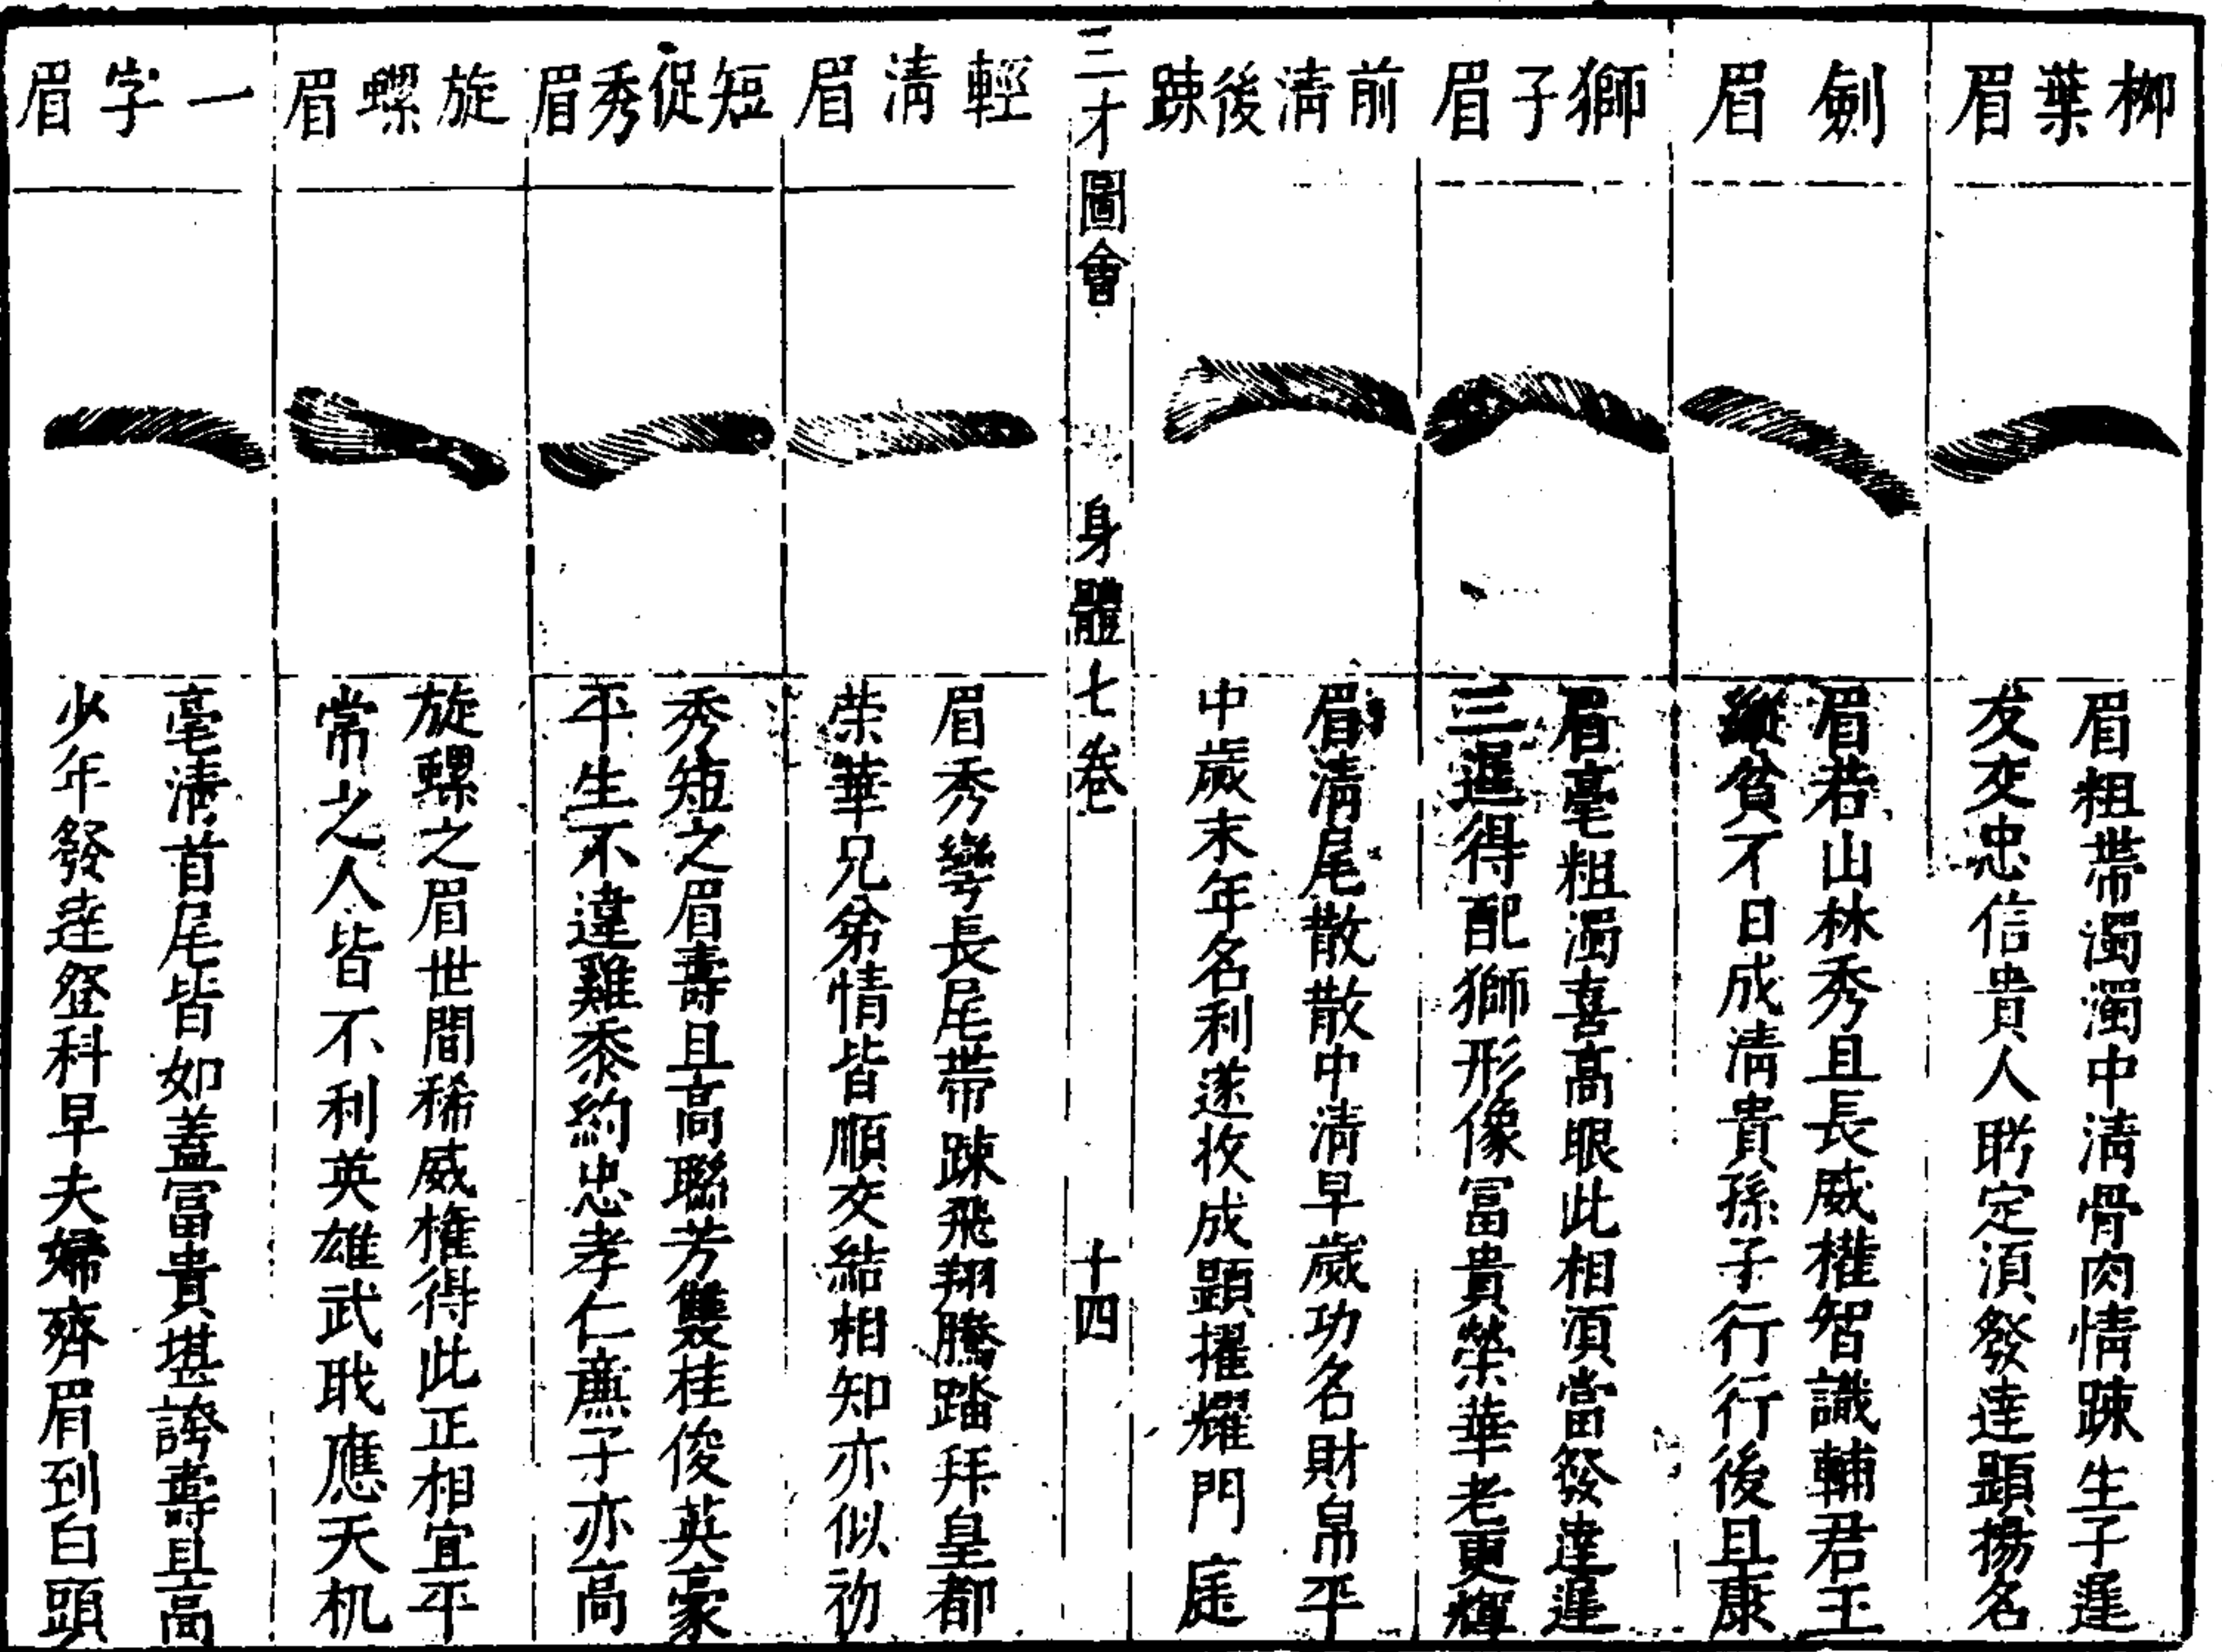 柳葉眉
眉粗帶濁濁中清骨肉情踈生子遲
友交忠信貴人盻定湏發達顯揚名
劍眉
眉若山林秀且長威權智識輔君王
縱貧不日成清貴孫子行行後且康
獅子眉
眉毫粗濁喜高眼此相湏當發達遲
三遲得配獅形像富貴榮華老更輝
前清後踈
眉清尾散散中清早歲功名財帛平
中歲末年名利遂收成顯擢耀門庭
三才圖會 身體七卷 十四
輕清眉
眉秀彎長尾帶踈飛翔騰踏拜皇都
荣華兄弟情皆順交結相知亦似初
短促秀眉
秀短之眉壽且高聯芳雙桂俊英豪
平生不違雞黍約忠孝仁亷子亦高
旋螺眉
旋螺之眉世間稀威權得此正相宜平
常之人皆不利英雄武职應天机
一字眉
毫清首尾皆如蓋富貴堪誇壽且高
少年發達登科早夫婦齊眉到白頭